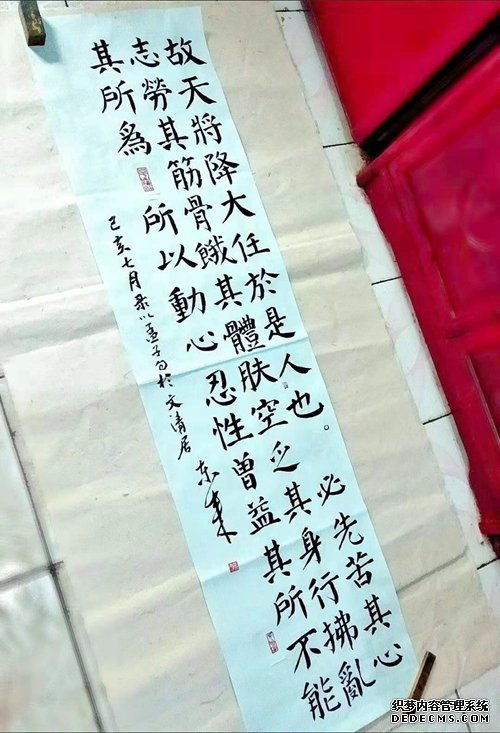 故天將降大任於是人也。必先苦其心
志勞其筋骨餓其體肤空乏其身行拂亂
其所爲 所以動心忍性曾益其所不能
己亥七月录以孟子句於文清居 东来
织梦内容管理系统
DEDECMS.COM